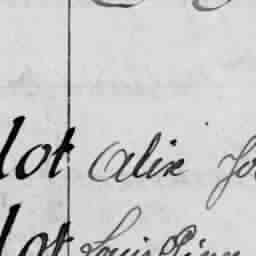 lot Alix Jo
lot Louis Pier